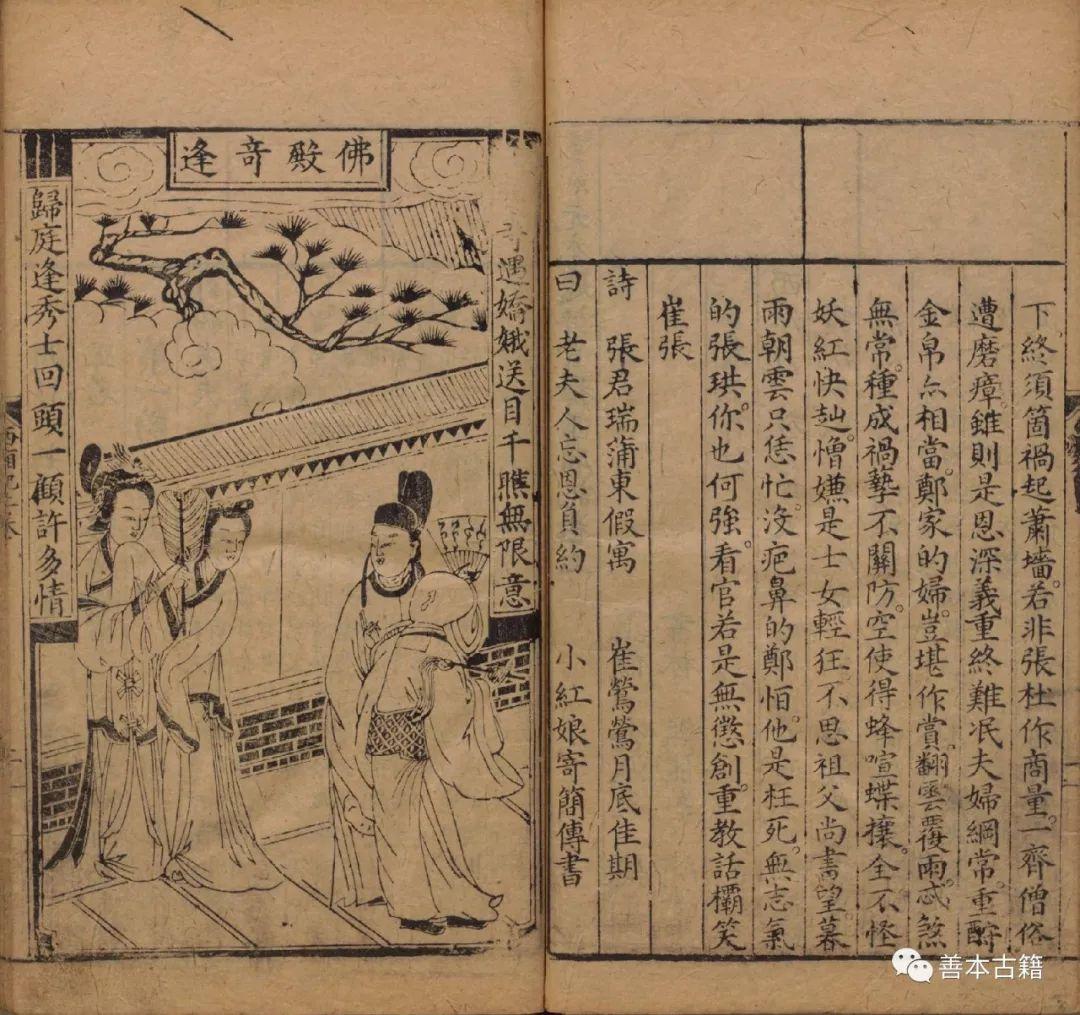 下終須箇禍起蕭墻若非張杜作商量一齊僧俗
遭磨瘴雖則是恩深義重終難泯夫婦綱常重酧
金帛亦相當鄭家的婦豈堪作賞翻雲覆雨忒煞
無常種成禍孽不關防空使得蜂喧蝶攘全不怪
妖紅快赸憎嫌是士女輕狂不思祖父尚書望暮
雨朝雲只恁忙沒疤鼻的鄭恒他是枉死無志氣
的張珙你也何強看官若是無懲創重教話欛笑
崔張
詩 張君瑞蒲東假寓 崔鶯鶯月底佳期
曰 老夫人忘恩負約 小紅娘寄簡傳書
佛殿奇逢
奇遇嬌娥送目千瞧無限意
歸庭逢秀士回頭一顧許多情
善本古籍